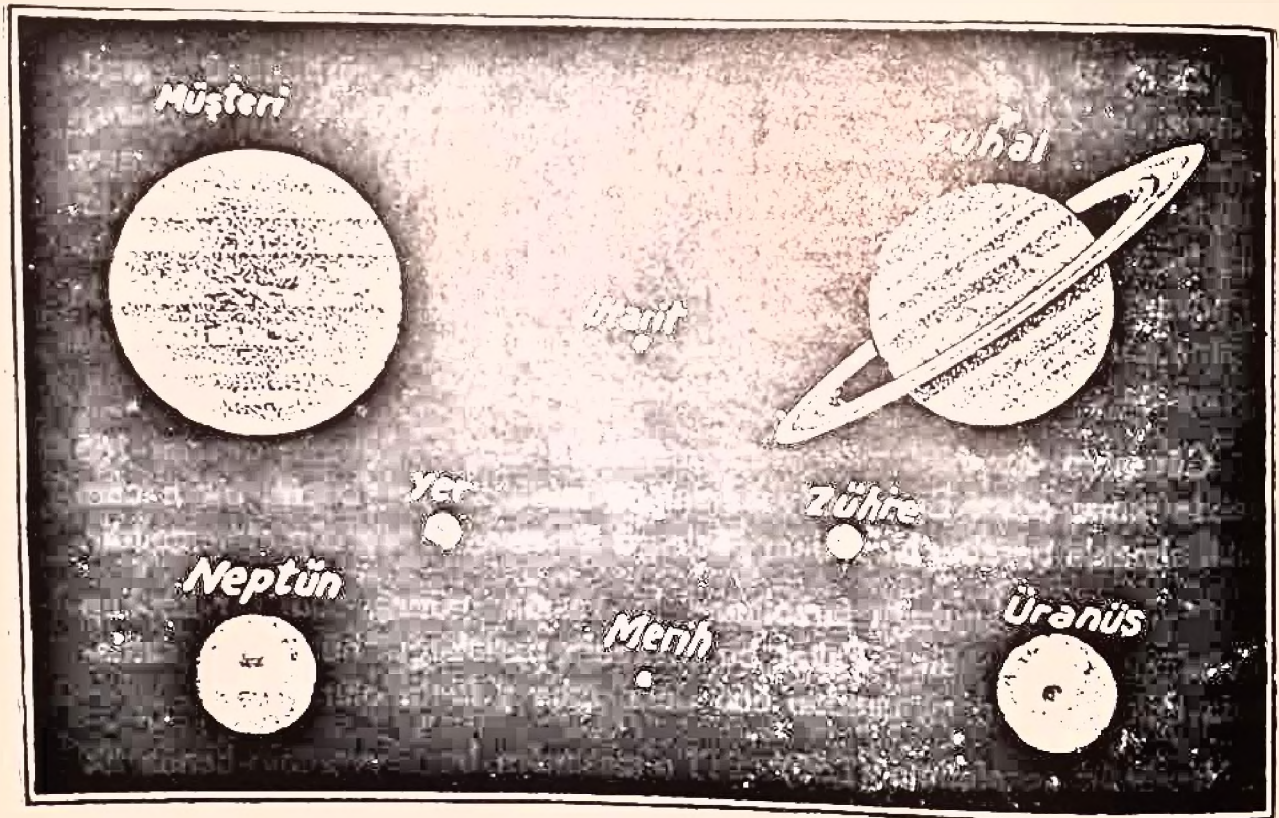 Müşteri
Zuhal
Utarit
Yer
Zühre
Neptün
Merih
Üranüs